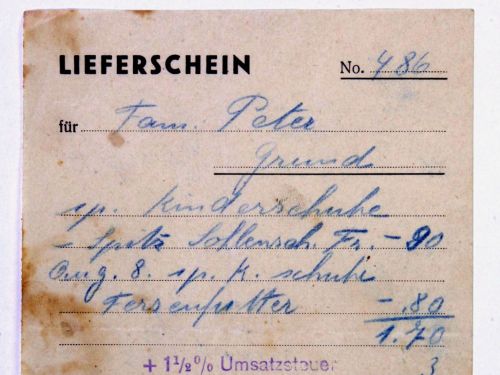 LIEFERSCHEIN No. 486
für Fam. Peter
Grund
sp. Kinderschuhe
- Spitz Sohlensch. Fr. -90
Aug. 8. sp. K. schuhe
Fersenfutter -.80
1.70
+ 1½% Umsatzsteuer 3